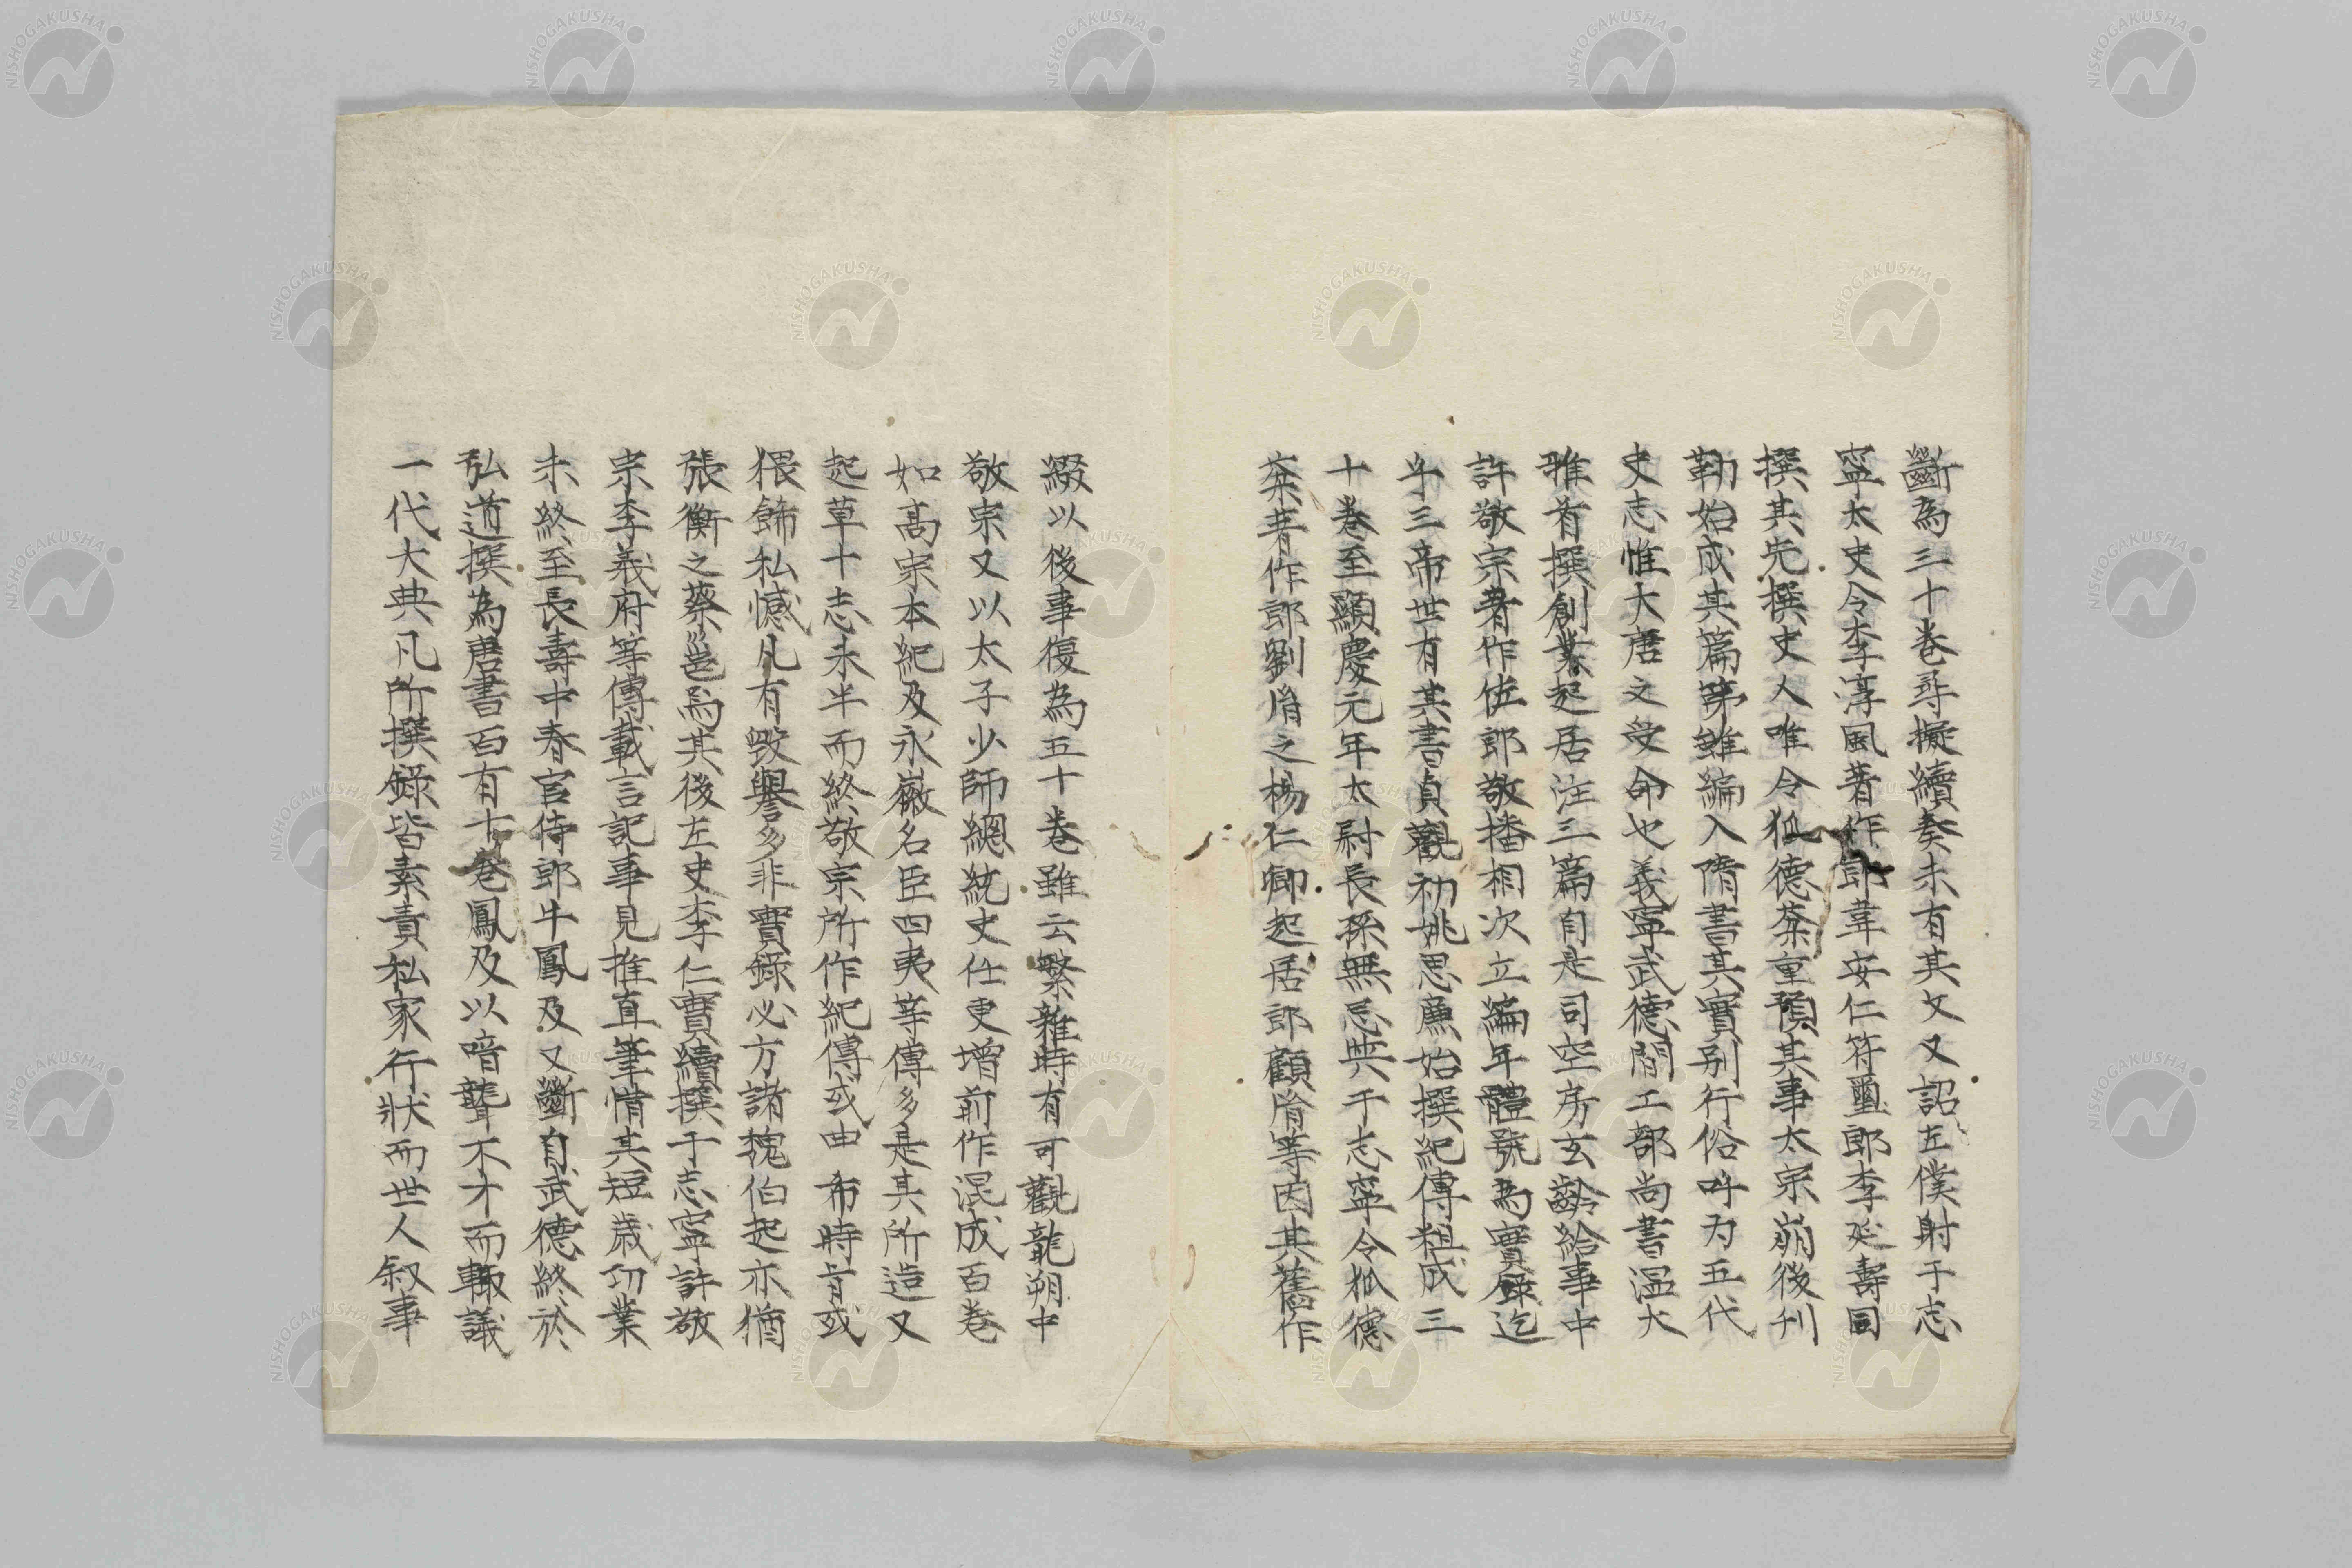 斷為三十卷尋擬續奏未有其文又詔左僕射于志
寧太史令李淳風著作郎韋安仁符璽郎李延壽同
撰其先撰史人唯令狐德棻重預其事太宗崩後刊
勒始成其篇第雖編入隋書其實別行俗呼為五代
史志惟大唐之受命也義寧武德間工部尚書溫大
雅首撰創業起居注三篇自是司空房玄齡給事中
許敬宗著作佐郎敬播相次立編年體號為實錄迄
乎三帝世有其書貞觀初姚思廉始撰紀傳粗成三
十卷至顯慶元年太尉長孫無忌與于志寧令狐德
棻著作郎劉胤之楊仁卿起居郎顧胤等因其舊作
綴以後事復為五十卷雖云繁雜時有可觀龍朔中
敬宗又以太子少師總統史任更增前作混成百卷
如高宗本紀及永徽名臣四夷等傳多是其所造又
起草十志未半而終敬宗所作紀傳或曲布時旨或
猥飾私憾凡有毀譽多非實錄必方諸魏伯起亦猶
張衡之蔡邕焉其後左史李仁實續撰于志寧許敬
宗李義府等傳載言記事見推直筆惜其短歲功業
未終至長壽中春官侍郎牛鳳及又斷自武德終於
弘道撰為唐書百有十卷鳳及以喑聾不才而輒議
一代大典凡所撰錄皆素責私家行狀而世人叙事
NISHOGAKUSHA